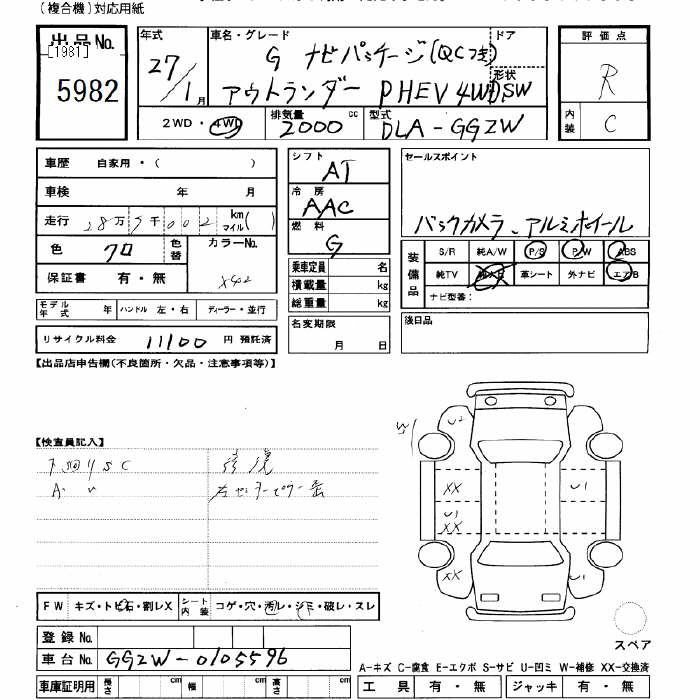 (複合機)対応用紙
出品No.
[1981]
5982
年式
27/1月
車名・グレード
G ナビパッケージ(QCつき)
アウトランダー PHEV 4WD
ドア
形状
5W
評価点
R
内装
C
2WD・4WD
排気量
2000 cc
型式
DLA-GG2W
車歴 自家用・( )
車検 年 月
走行 28万 7千 002 km マイル ( )
色 クロ 色替
カラーNo.
X42
保証書 有・無
シフト
AT
冷房
AAC
燃料
G
乗車定員 名
積載量 kg
総重量 kg
名変期限
月 日
セールスポイント
バックカメラ、アルミホイール
装備品
S/R 純A/W P/S P/W ABS
純TV 革シート 外ナビ エアB
ナビ型番:
後日品
モデル年式 年 ハンドル 左・右 ディーラー・並行
リサイクル料金 11100 円 預託済
【出品店申告欄(不良箇所・欠品・注意事項等)】
【検査員記入】
下回りSC
A 〃
修復
左センターピラー
W
U2
XX
U1
U1
XX
XX
U1
FW キズ・トビ石・割レX シート内装 コゲ・穴・汚レ・シミ・破レ・スレ
スペア
登録No.
車台No. GG2W-0105596
A-キズ C-腐食 E-エクボ S-サビ U-凹ミ W-補修 XX-交換済
車庫証明用 長さ cm 幅 cm 高さ cm 工具 有・無 ジャッキ 有・無